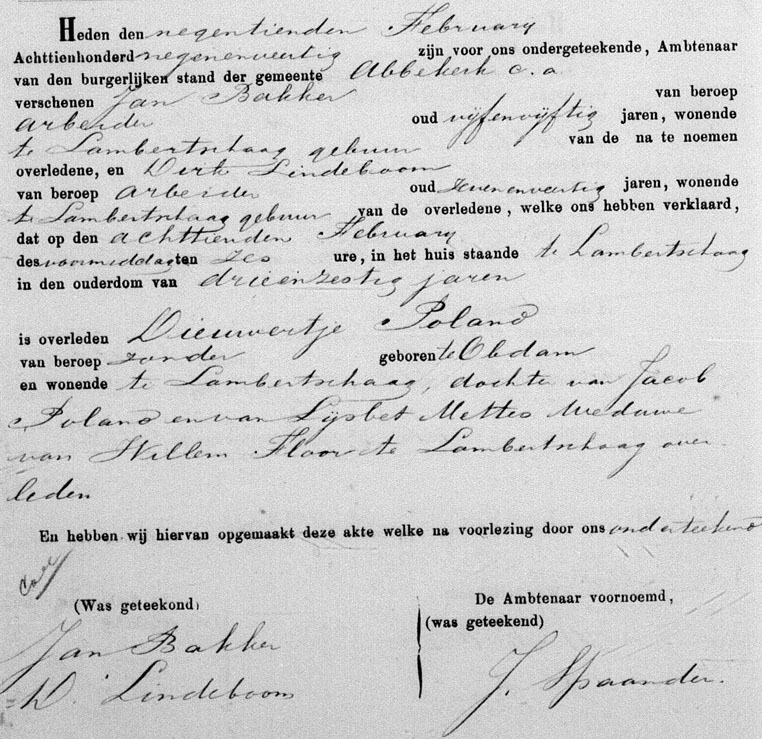 Heden den negentienden February
Achttienhonderd negenenveertig zijn voor ons ondergeteekende, Ambtenaar
van den burgerlijken stand der gemeente Abbekerk c.a.
verschenen Jan Bakker van beroep
arbeider oud vijfenvijftig jaren, wonende
te Lambertschaag gebuur van de na te noemen
overledene, en Dirk Lindeboom
van beroep arbeider oud zevenenveertig jaren, wonende
te Lambertschaag gebuur van de overledene, welke ons hebben verklaard,
dat op den achttienden February
des voormiddags ten zes ure, in het huis staande te Lambertschaag
in den ouderdom van drieenzestig jaren
is overleden Dieuwertje Poland
van beroep zonder geboren te Obdam
en wonende te Lambertschaag, dochter van Jacob
Poland en van Lijsbet Mettes Weduwe
van Willem Floor te Lambertschaag over
leden
En hebben wij hiervan opgemaakt deze akte welke na voorlezing door ons onderteekend
(Was geteekend) De Ambtenaar voornoemd,
(was geteekend)
Jan Bakker
D. Lindeboom J. Spaander.